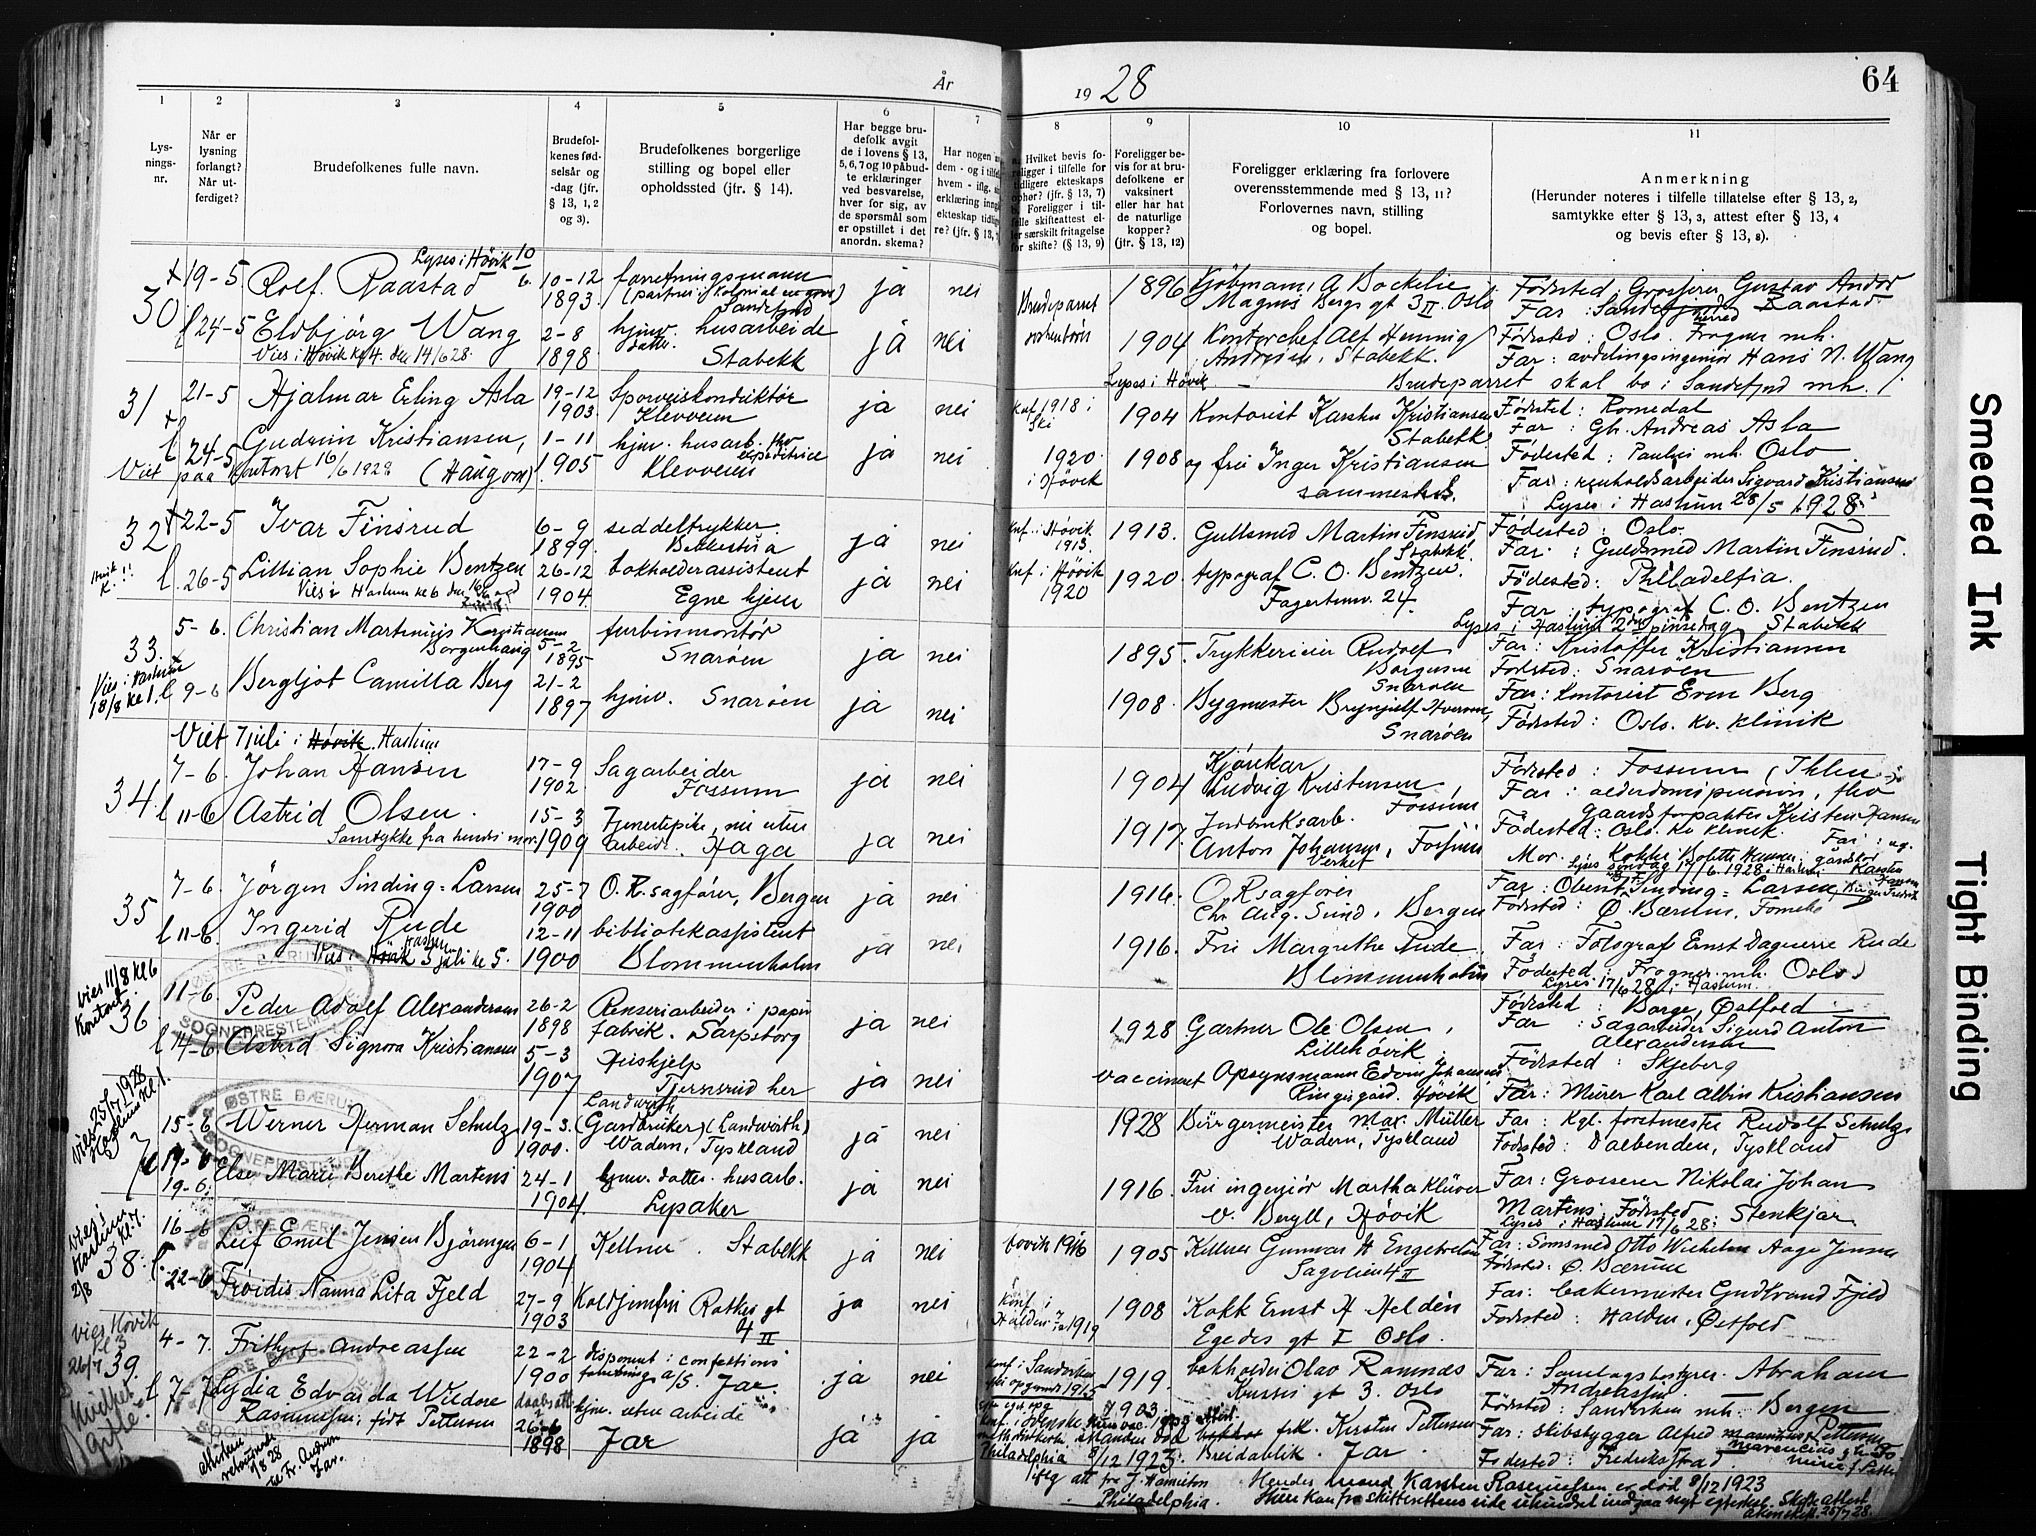 År 1928
64
1
2
3
4
5
6
7
8
9
10
11
Lys-
nings-
nr.
Når er
lysning
forlangt?
Når ut-
ferdiget?
Brudefolkenes fulle navn.
Brudefol-
kenes fød-
selsår og
-dag (jfr.
§ 13, 1, 2
og 3).
Brudefolkenes borgerlige
stilling og bopel eller
opholdssted (jfr. § 14).
Har begge bru-
defolk avgit
de i lovens § 13,
5, 6, 7 og 10 påbud-
te erklæringer
ved besvarelse,
hver for sig, av
de spørsmål som
er opstillet i det
anordn. skema?
Har nogen
dem - og i tilfe
hvem - iflg.
erklæring inng
ekteskap tidlig
re? (jfr. § 13,
Hvilket bevis fo-
religger i tilfelle for
tidligere ekteskaps
ophør? (jfr. § 13, 7)
Foreligger i til-
felle skifteattest el-
ler særskilt fritagelse
for skifte? (§ 13, 9)
Foreligger be-
vis for at bru-
defolkene er
vaksinert
eller har hat
de naturlige
kopper?
(jfr. § 13, 12)
Foreligger erklæring fra forlovere
overensstemmende med § 13, 11?
Forlovernes navn, stilling
og bopel.
Anmerkning
(Herunder noteres i tilfelle tillatelse efter § 13, 2,
samtykke efter § 13, 3, attest efter § 13, 4
og bevis efter § 13, 8).
Lyses i Høvik 10/6
30 19-5 Rolf Raastad 10-12 1893 forretningsmann Sandefjord ja nei
1896 Kjøbmann A Bockelie Magnus Bergs gt 3 II Oslo
Fødested: Grosserer Gustav Andor
Far: Sandefjord Raastad
24-5 Eldbjørg Wang 2-8 1898 hjmv. datter husarbeide Stabekk ja nei
Vies i Høvik kl 4. den 14/6 28.
Brudeparret
1904 Kontorchef Alf Henning Andresen, Stabekk.
Fødested: Oslo. Frogner mh.
Far: avdelingsingeniør Hans N. Wang
Lyses i Høvik - Brudeparret skal bo i Sandefjord mh.
31 21-5 Hjalmar Erling Asla 19-12 1903 Sporveiskonduktør Klevveien ja nei
knf 1918 i Ski 1904 Kontorist Karsten Kristiansen Stabekk
Fødested: Romedal
Far: Gb. Andreas Asla
24-5 Gudrun Kristiansen, (Haugom) 1-11 1905 hjmv. husarb. Klevveien ja nei
Viet paa kontoret 16/6 1928
1920 i Høvik 1908 og frue Inger Kristiansen sammesteds.
Fødested: Paulus mh. Oslo
Far: renholdsarbeider Sigvard Kristiansen
Lyses i Haslum 28/5 1928
32 22-5 Ivar Finsrud 6-9 1899. seddeltrykker Bekkestua ja nei
knf. i Høvik 1913. 1913. Gullsmed Martin Finsrud, Stabekk
Fødested: Oslo.
Far: Guldsmed Martin Finsrud.
26-5 Lillian Sophie Bentzen 26-12 1904. bokholderassistent Egne hjem ja nei
Vies i Haslum kl 6 den 16/6
knf i Høvik 1920 1920. typograf C. O. Bentzen. Fagertunv. 24.
Fødested: Philadelfia.
Far: typograf C. O. Bentzen Stabekk
Lyses i Haslum 2den pinsedag
33. 5-6. Christian Martinius Kristiansen Borgenhaug 5-2 1895 turbinmontør Snarøen ja nei
1895. Trykkerieier Rudolf Borgersen Snarøen
Far: Kristoffer Kristiansen
Fødested: Snarøen
Vies i Haslum 18/8 kl 1.
9-6 Bergljot Camilla Berg 21-2 1897 hjmv. Snarøen ja nei
1908. Bygmester Brynjulf Iversen, Snarøen
Far: Kontorist Even Berg
Fødested: Oslo. kv. klinik
Viet 7 juli i Høvik Haslum
34. 7-6. Johan Hansen 17-9 1902 Sagarbeider Fossum ja nei
1904 Kjørekar Ludvig Kristensen Fossum
Fødested: Fossum
Far: alderdomspensionn,
gaardsforpakter Kristen Hansen
11-6 Astrid Olsen. 15-3 1909 Tjenestepike nu uten arbeide. Haga ja nei
Samtykke fra hendes mor.
1917. Jernbruksarb. Anton Johansen, Fossum Verket
Fødested: Oslo. Kv klinik. Far:
Lyses søndag 17/6 1928 i Haslum
35 7-6. Jørgen Sinding-Larsen 25-7 1900 O.R.sagfører, Bergen ja nei
1916. O.R.sagfører Chr. Aug. Sund, Bergen
Far: Oberstl. Sinding-Larsen,
Fødested: Ø. Bærum,
11-6. Ingerid Rude 12-11 1900 bibliotekassistent Blommenholm ja nei
Vies i Høvik Haslum 5 juli kl 5.
1916. Fru Margrethe Rude Blommenholm
Far: Fotograf Ernst Daguerre Rude
Fødested: Frogner mh. Oslo
Lyses 17/6 28 i Haslum
Vies 11/8 kl 6 Kontoret.
36. 11-6. Peder Adolf Alexandersen 26-2 1898 Renseriarbeider i papirfabrik. Sarpsborg ja nei
1928 Gartner Ole Olsen, Lillehøvik
Fødested: Borge, Østfold
Far: Sagarbeider Sigurd Anton Alexandersen
14-6. Astrid Signora Kristiansen 5-3 1907 Hushjelp Tjernsrud her ja nei
vaccinert Opsynsmann Edvin Johansen Ringigaard. Høvik
Fødested: Skjeberg
Far: Murer Karl Albin Kristiansen
Vies 25/7 1928 Haslum kl 1.
37 15-6 Werner Herman Schulz 19-3. 1900. Landwirth (Gardbruker) (Landwirth) Wadern, Tyskland ja nei
1928 Bürgermeister Max Müller Wadern, Tyskland
Far: Kgl. forstmester Rudolf Schulz
Fødested: Dalbenden, Tyskland
19-6. Else Marie Berethe Martens 24-1 1904. hjmv. datter husarb. Lysaker ja nei
1916. Fru ingeniør Martha Klüver v. Beryll, Høvik
Far: Grosserer Nikolai Johan
Martens, Fødested: Stenkjær
Lyses i Haslum 17/6 28:
Vies i Haslum kl. 7. 2/8
38. 16-6 Leif Emil Jensen Bjørengen 6-1 1904 Kellner. Stabekk ja nei
1916 1905 Kellner Gunnar H Engebretsen Sagveien 4 II
Far: Smsmed Otto Wilhelm Aage Jensen
Fødested: Ø. Bærum
22-6 Frøidis Nanna Lita Fjeld 27-9 1903 Koldjomfru Rathkes gt 4 II ja nei
konf. i Halden 1919 1908 Kokk Ernst H Heldén Egedes gt I Oslo.
Far: bakermester Gudbrand Fjeld
Fødested: Halden, Østfold
Vies Høvik kl 3 26/7
39. 4-7. Frithjof Andreassen 22-2 1900 disponent i confektions forretning a/s. Jar. ja nei
konf. i Sandviken 1915 1919. bokholder Olav Ramnæs gt 3. Oslo
Far: Samlagsbestyrer Abraham Andreassen
Fødested: Sandviken mh. Bergen
7-7 Lydia Edvarda Wildore Rasmussen, født Pettersen 26-6 1898 hjm. uten arbeide Jar ja ja
1903. frk. Kirsten Pettersen Breidablik. Jar.
Far: skibsbygger Alfred Pettersen
Fødested: Fredrikstad
Philadelphia 8/12 1923.
Philadelphia. Hendes mand Karsten Rasmussen er død 8/12 1923
ØSTRE BÆRUM
SOGNEPRESTEM
ØSTRE BÆRUM
SOGNEPRESTE
Smeared Ink
Tight Binding